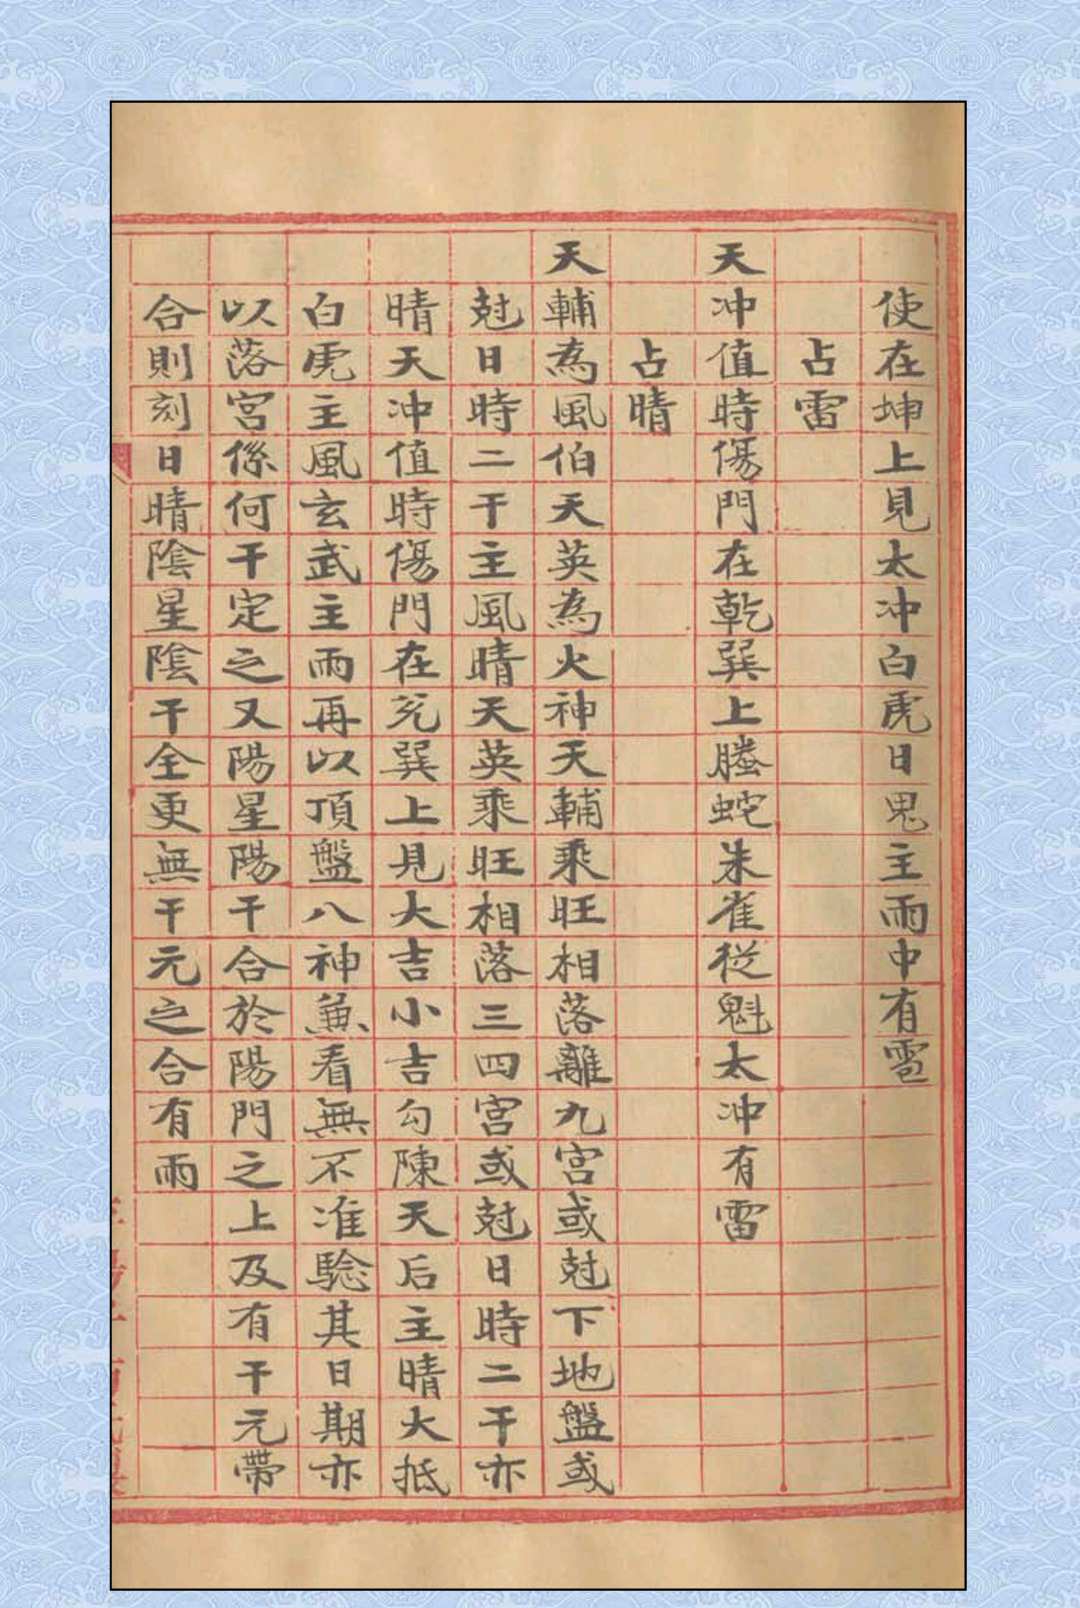 使在坤上見太冲白虎日鬼主雨中有雹
占雷
天冲值時傷門在乾巽上螣蛇朱雀從魁太冲有雷
占晴
天輔為風伯天英為火神天輔乘旺相落離九宮或尅下地盤或
尅日時二干主風晴天英乘旺相落三四宮或尅日時二干亦
晴天冲值時傷門在兌巽上見大吉小吉勾陳天后主晴大抵
白虎主風玄武主雨再以頂盤八神兼看無不准驗其日期亦
以落宮係何干定之又陽星陽干合於陽門之上及有干元帶
合則刻日晴陰星陰干全更無干元之合有雨